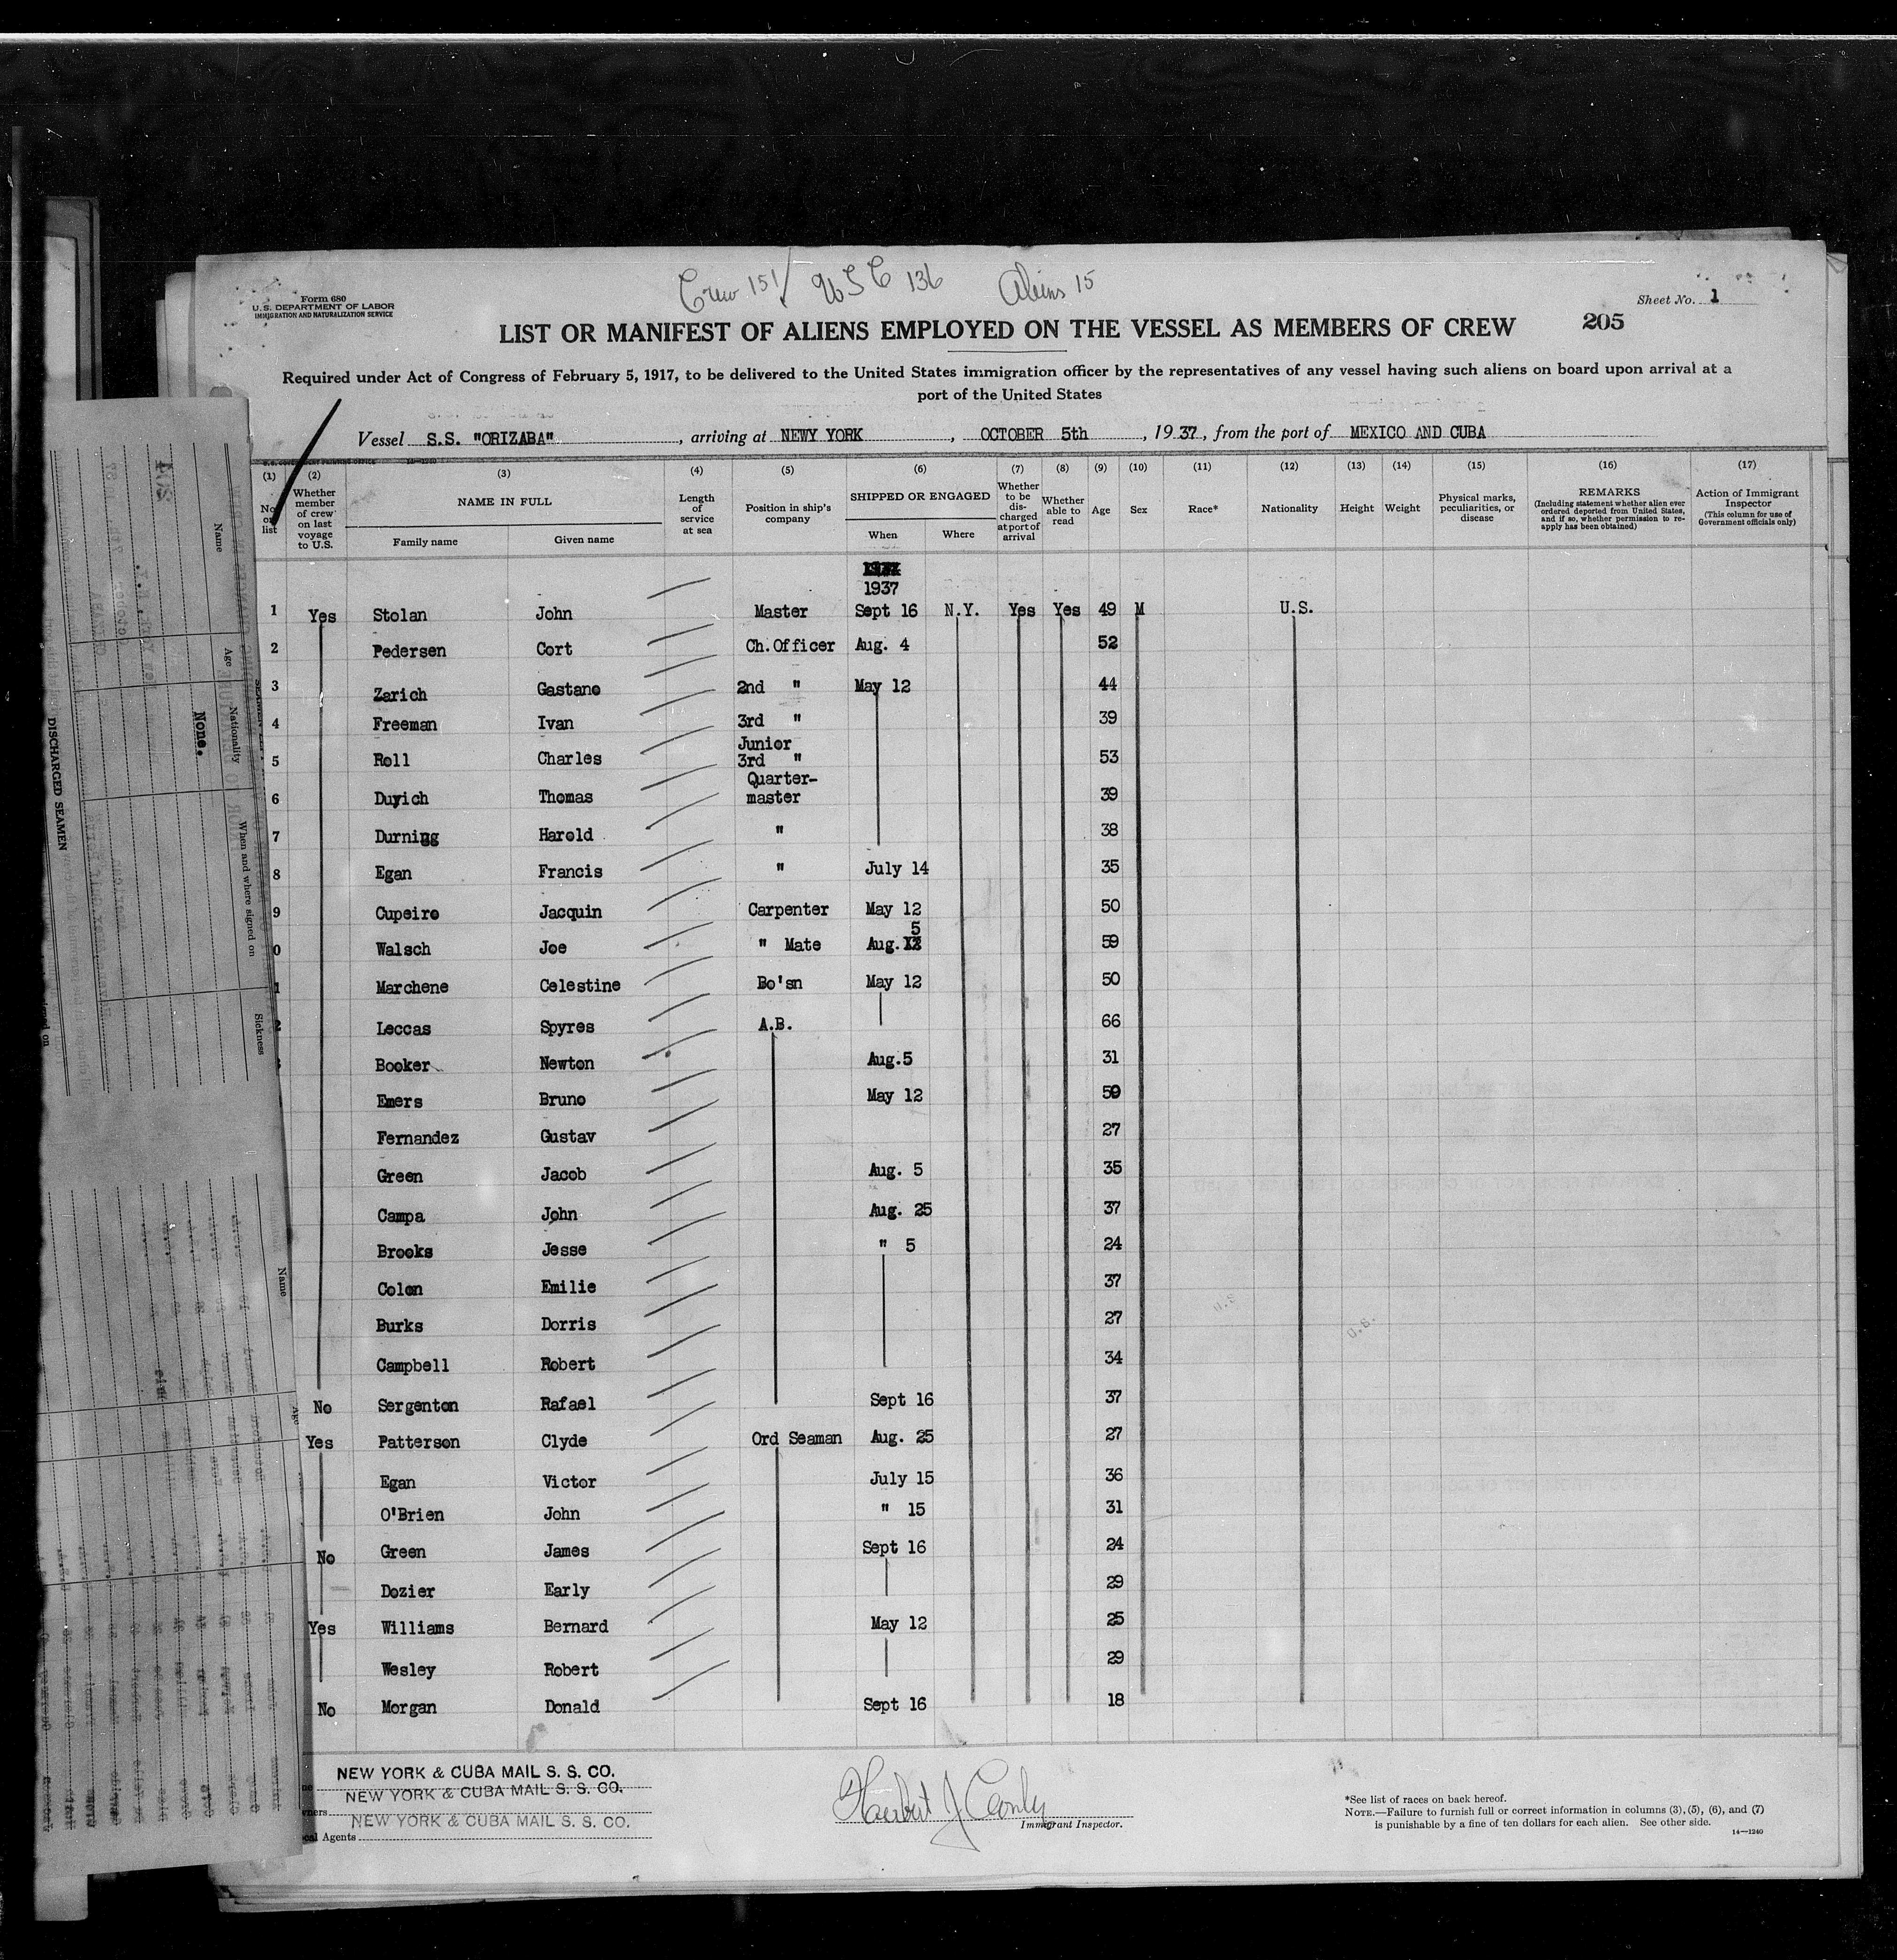 Crew 151 USC 136 Aliens 15
Form 680
U.S. DEPARTMENT OF LABOR
IMMIGRATION AND NATURALIZATION SERVICE
Sheet No. 1
LIST OR MANIFEST OF ALIENS EMPLOYED ON THE VESSEL AS MEMBERS OF CREW
205
Required under Act of Congress of February 5, 1917, to be delivered to the United States immigration officer by the representatives of any vessel having such aliens on board upon arrival at a
port of the United States
Vessel S.S. "ORIZABA", arriving at NEWY YORK, OCTOBER 5th, 1937, from the port of MEXICO AND CUBA
(1) (2) (3) (4) (5) (6) (7) (8) (9) (10) (11) (12) (13) (14) (15) (16) (17)
No. on list
Whether member of crew on last voyage to U.S.
NAME IN FULL
Family name Given name
Length of service at sea
Position in ship's company
SHIPPED OR ENGAGED
When Where
Whether to be discharged at port of arrival
Whether able to read
Age
Sex
Race*
Nationality
Height
Weight
Physical marks, peculiarities, or disease
REMARKS
(Including statement whether alien ever ordered deported from United States, and if so, whether permission to reapply has been obtained)
Action of Immigrant Inspector
(This column for use of Government officials only)
1937
1 Yes Stolan John Master Sept 16 N.Y. Yes Yes 49 M U.S.
2 Pedersen Cort Ch.Officer Aug. 4 52
3 Zarich Gastano 2nd " May 12 44
4 Freeman Ivan 3rd " 39
5 Roll Charles Junior 3rd " 53
6 Duyich Thomas Quarter-master 39
7 Durning Harold " 38
8 Egan Francis " July 14 35
9 Cupeiro Jacquin Carpenter May 12 50
0 Walsch Joe " Mate Aug. 5 59
1 Marchene Celestine Bo'sn May 12 50
2 Leccas Spyres A.B. 66
Booker Newton Aug.5 31
Emers Bruno May 12 59
Fernandez Gustav 27
Green Jacob Aug. 5 35
Campa John Aug. 25 37
Brooks Jesse " 5 24
Colon Emilie 37
Burks Dorris 27
Campbell Robert 34
No Sergenton Rafael Sept 16 37
Yes Patterson Clyde Ord Seaman Aug. 25 27
Egan Victor July 15 36
O'Brien John " 15 31
No Green James Sept 16 24
Dozier Early 29
Yes Williams Bernard May 12 25
Wesley Robert 29
No Morgan Donald Sept 16 18
NEW YORK & CUBA MAIL S. S. CO.
NEW YORK & CUBA MAIL S. S. CO.
NEW YORK & CUBA MAIL S. S. CO.
Agents
Immigrant Inspector.
*See list of races on back hereof.
NOTE.—Failure to furnish full or correct information in columns (3), (5), (6), and (7)
is punishable by a fine of ten dollars for each alien. See other side.
14—1240
DISCHARGED SEAMEN
Name
Age
Nationality
When and where signed on
Sickness
None.
Name
Age